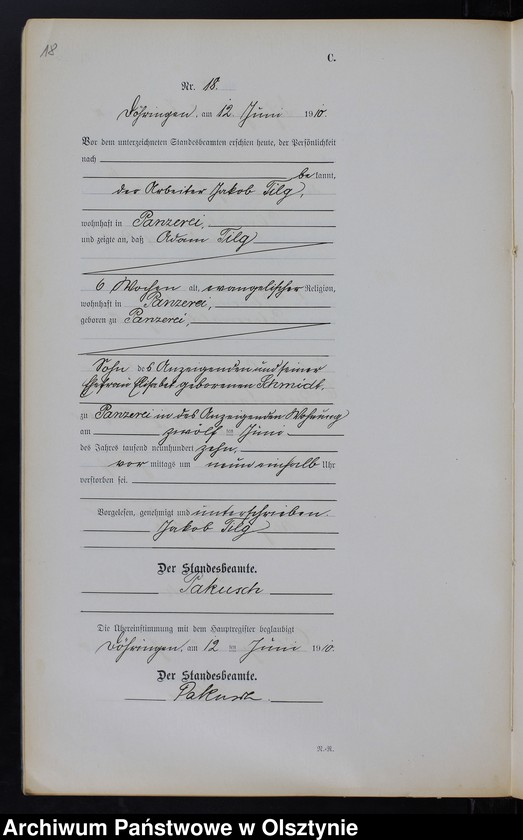 18
C.
Nr. 18.
Döhringen, am 12 Juni 1910.
Vor dem unterzeichneten Standesbeamten erschien heute, der Persönlichkeit
nach
be kannt,
der Arbeiter Jakob Tilg,
wohnhaft in Panzerei,
und zeigte an, daß Adam Tilg
6 Wochen alt, evangelischer Religion,
wohnhaft in Panzerei,
geboren zu Panzerei,
Sohn des Anzeigenden und seiner
Ehefrau Elisabet geborenen Schmidt.
zu Panzerei in des Anzeigenden Wohnung
am zwölf ten Juni
des Jahres tausend neunhundert zehn
vor mittags um neun einhalb Uhr
verstorben sei.
Vorgelesen, genehmigt und unterschrieben.
Jakob Tilg
Der Standesbeamte.
Pakusch
Die Übereinstimmung mit dem Hauptregister beglaubigt
Döhringen, am 12 ten Juni 1910.
Der Standesbeamte.
Pakusch.
N.-R.
Archiwum Państwowe w Olsztynie